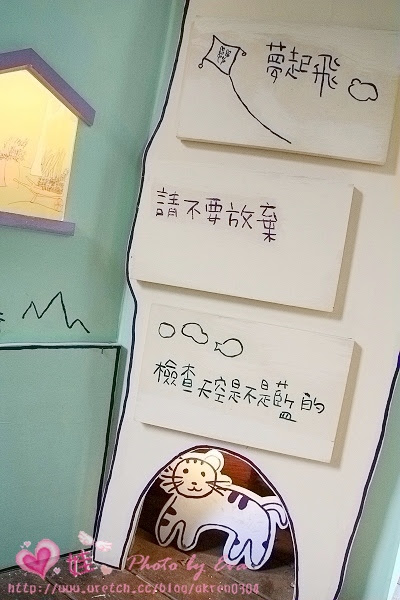 夢起飛
請不要放棄
檢查天空是不是藍的
Photo by Eva
http://www.wretch.cc/blog/akren0304